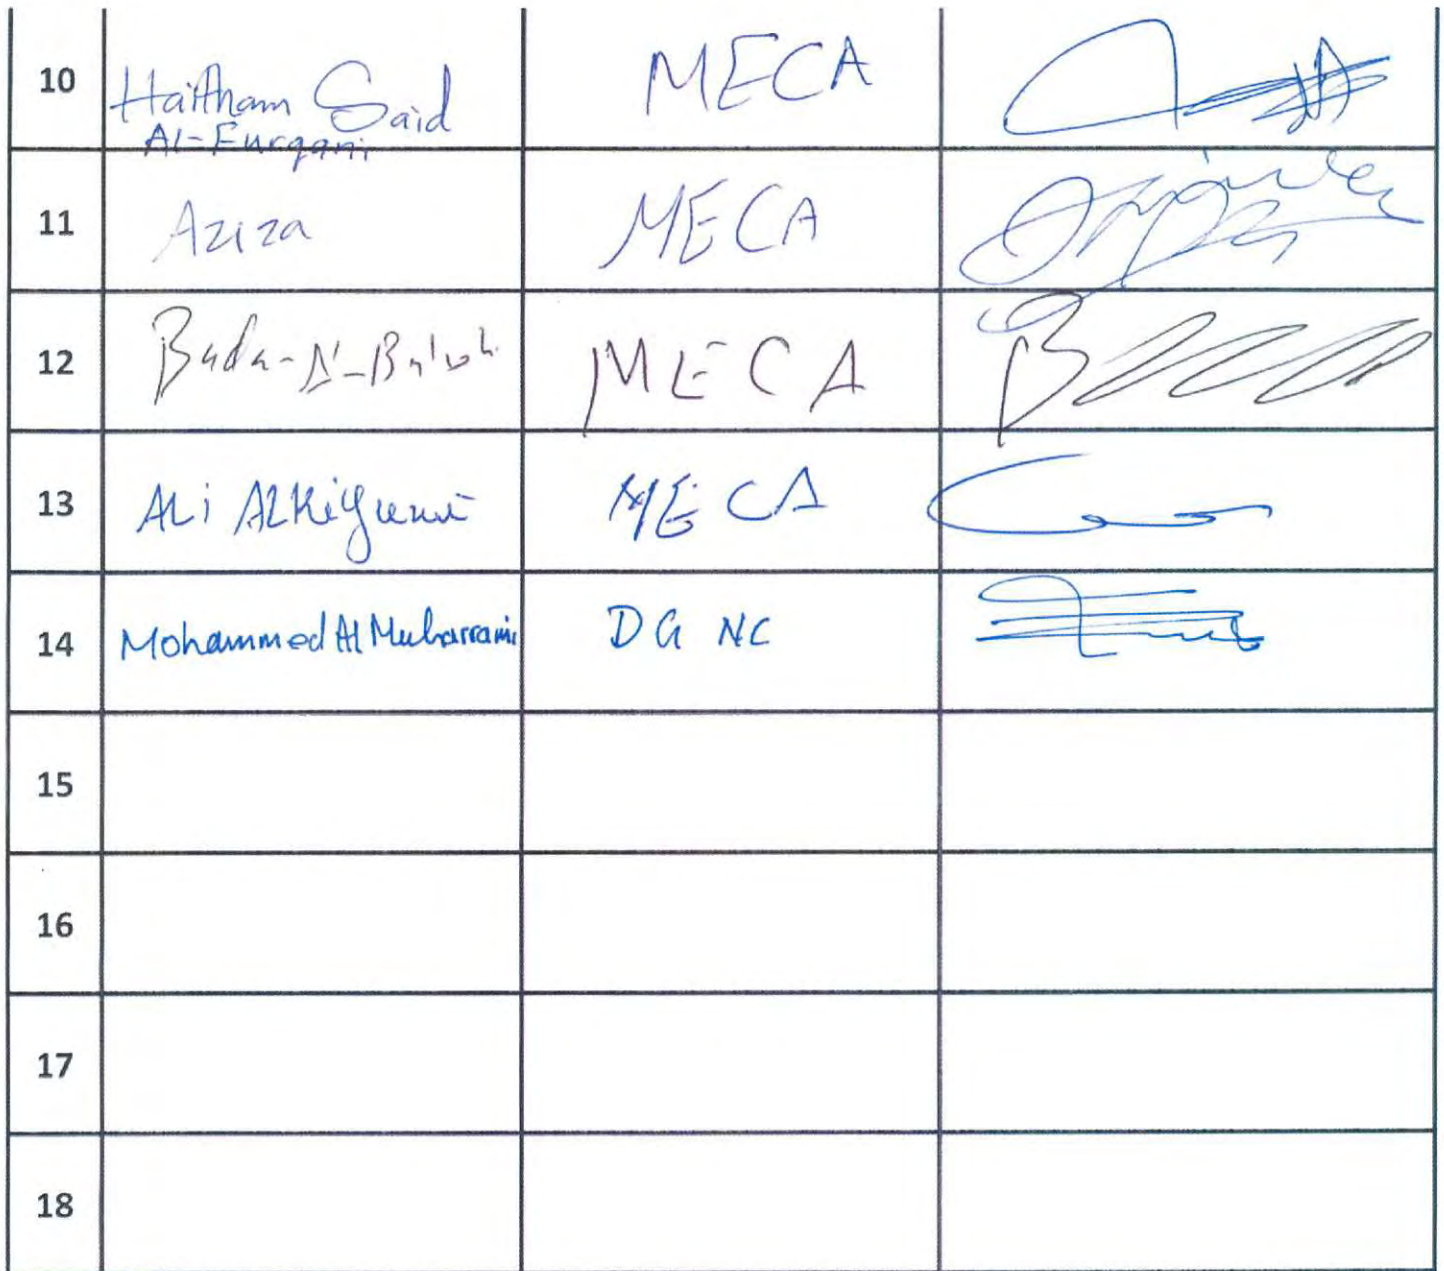 10 Haitham Said MECA
Al-Furqani
11 Aziza MECA
12 MECA
13 ALi ALKiyumi MECA
14 Mohammed Al Muharrami DG NC
15
16
17
18